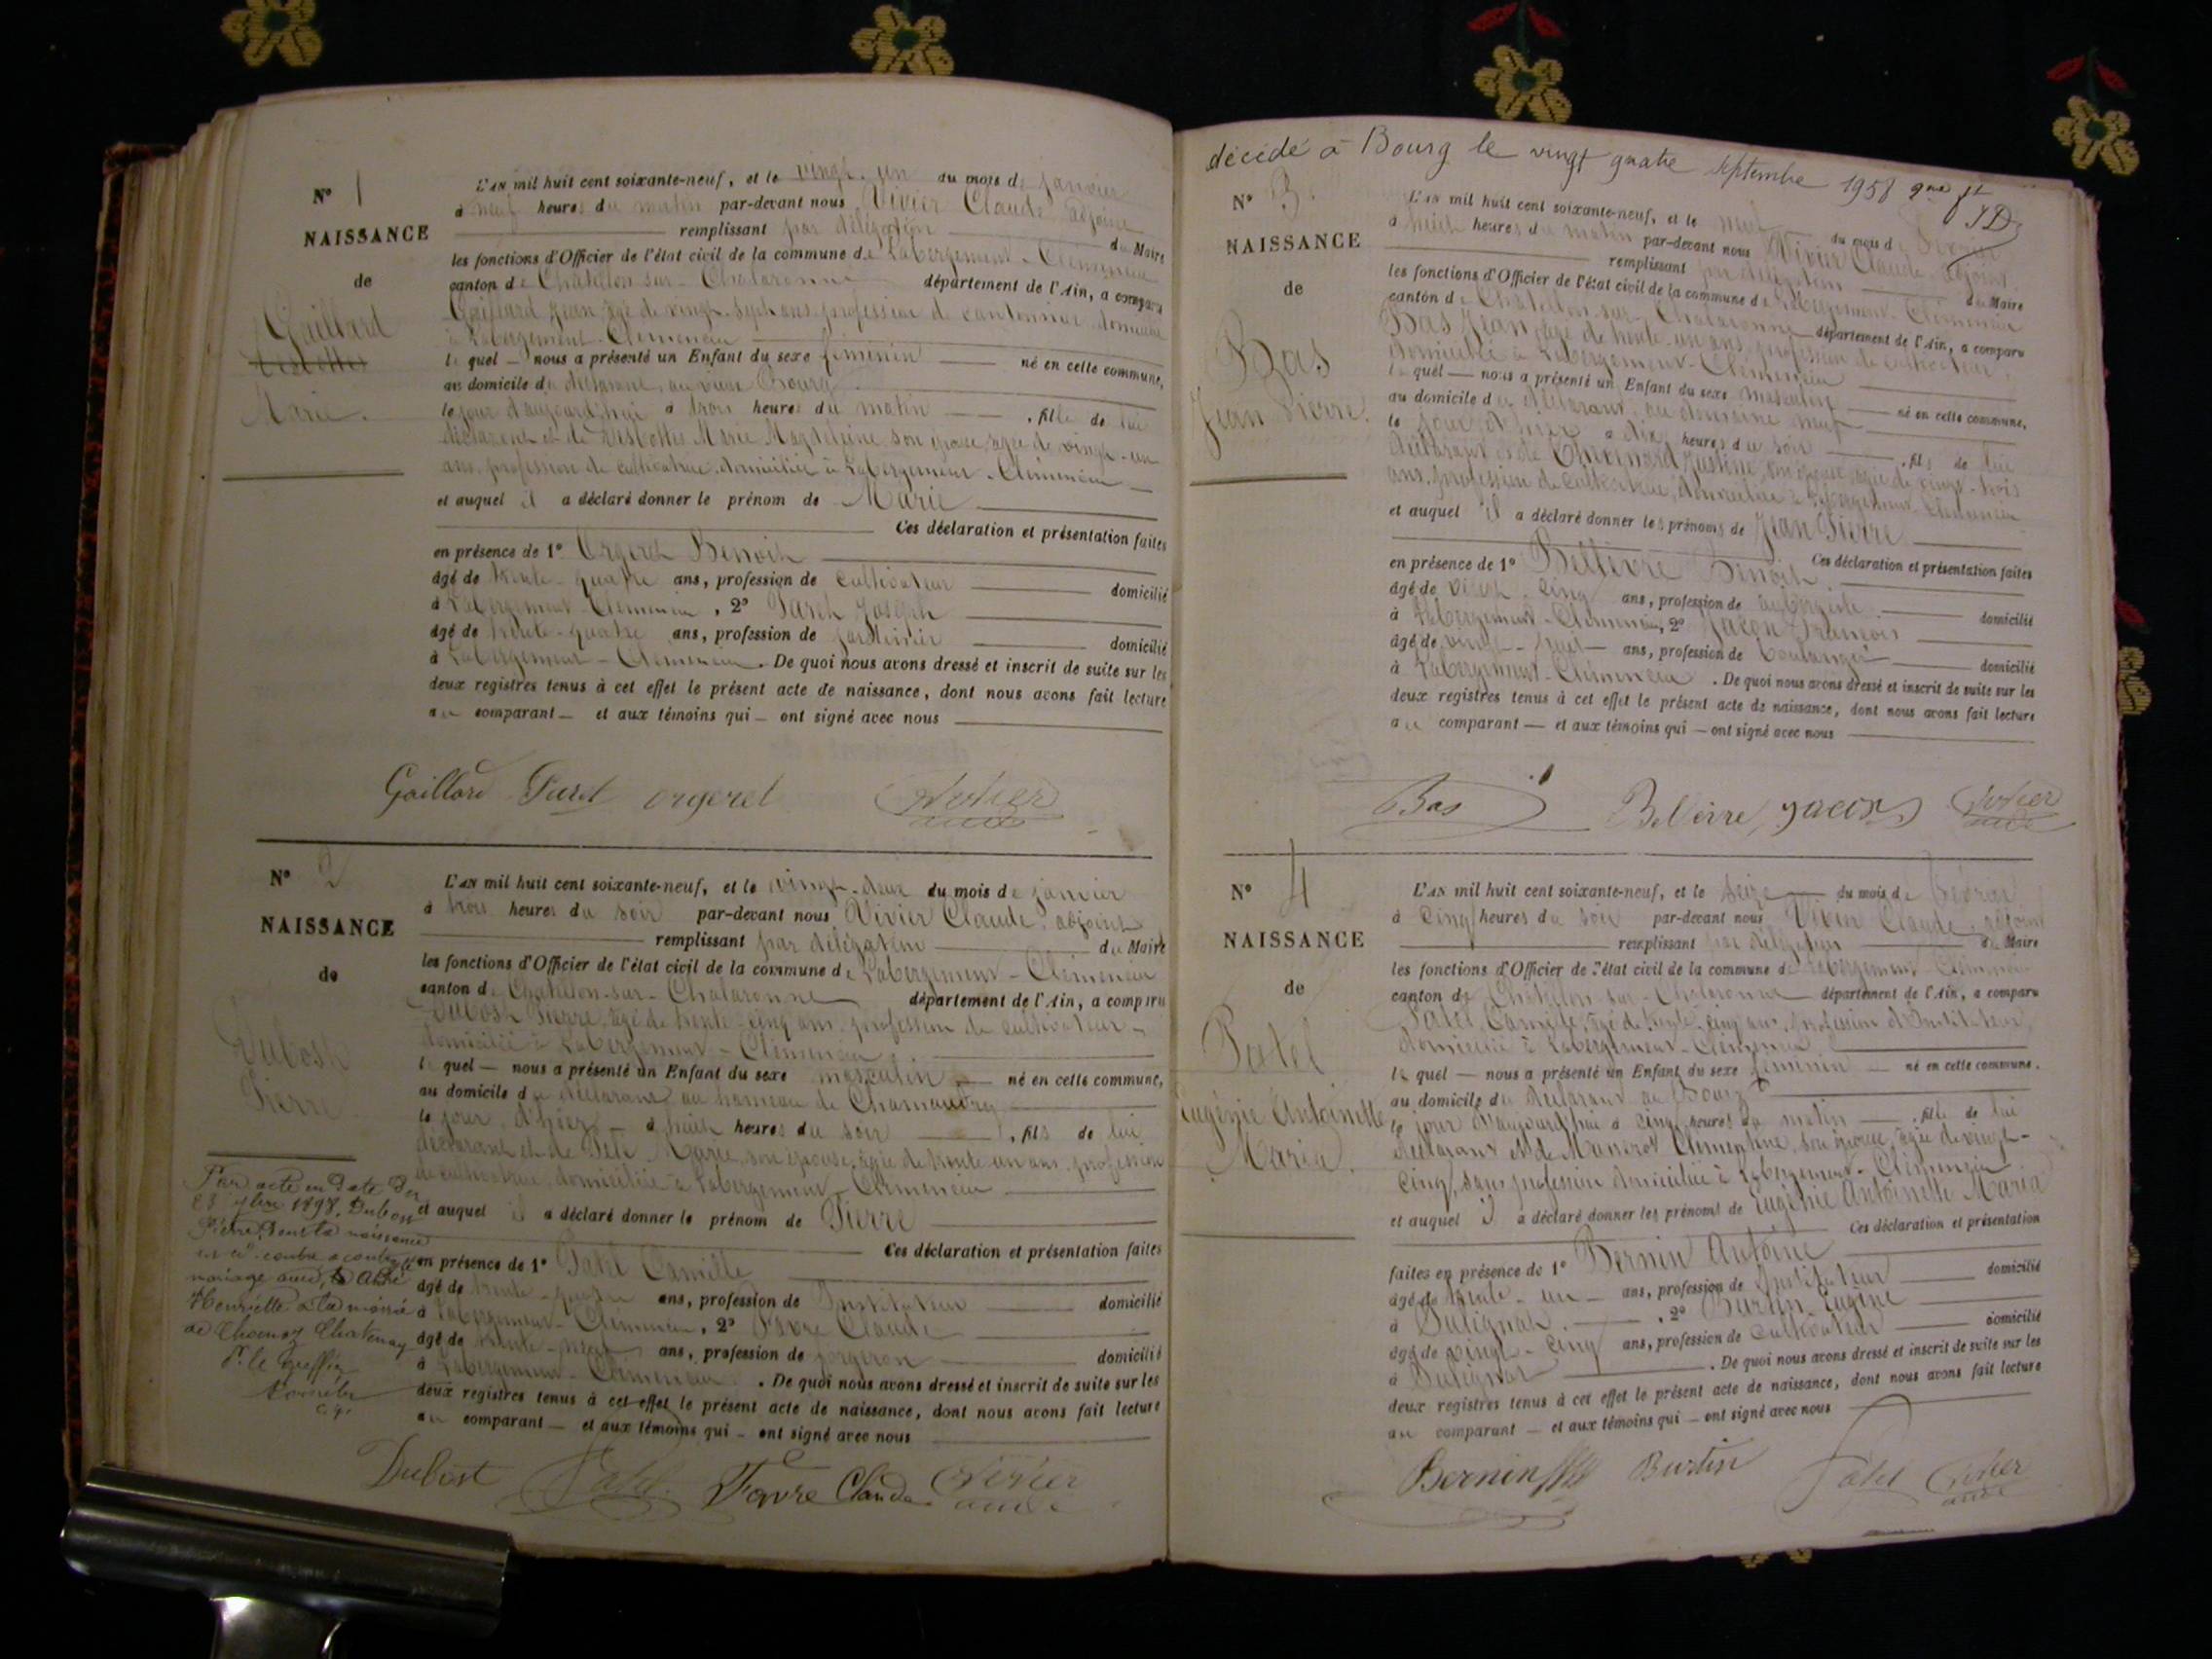 N° 1
NAISSANCE
de
Gaillard
Marie.
L'AN mil huit cent soixante-neuf, et le vingt-un du mois de janvier
à neuf heures du matin par-devant nous Vivier Claude adjoint
remplissant par délégation du Maire
les fonctions d'Officier de l'état civil de la commune de Labergement-Clémencia
canton de Chatillon-sur-Chalaronne département de l'Ain, a comparu
Gaillard Jean, âgé de vingt-sept ans, profession de cantonnier, domicilié
à Labergement-Clémencia
lequel nous a présenté un Enfant du sexe féminin né en cette commune,
au domicile du déclarant, au
le jour d'aujourd'hui à trois heures du matin, fille de lui
déclarant et de Marie Magdeleine, son épouse, âgée de vingt-un
ans, profession de cultivatrice, domiciliée à Labergement-Clémencia
et auquel il a déclaré donner le prénom de Marie
Ces déclaration et présentation faites
en présence de 1° Orgeret Benoit
âgé de trente-quatre ans, profession de cultivateur domicilié
à Labergement-Clémencia, 2° Joseph
âgé de trente-quatre ans, profession de domicilié
à Labergement-Clémencia. De quoi nous avons dressé et inscrit de suite sur les
deux registres tenus à cet effet le présent acte de naissance, dont nous avons fait lecture
au comparant et aux témoins qui ont signé avec nous
Gaillard orgeret Vivier
N° 2
NAISSANCE
de
Dubost
Pierre
L'AN mil huit cent soixante-neuf, et le vingt-deux du mois de janvier
à trois heures du soir par-devant nous Vivier Claude, adjoint
remplissant par délégation du Maire
les fonctions d'Officier de l'état civil de la commune de Labergement-Clémencia
canton de Chatillon-sur-Chalaronne département de l'Ain, a comparu
Dubost Pierre, âgé de trente-cinq ans, profession de cultivateur
domicilié à Labergement-Clémencia
lequel nous a présenté un Enfant du sexe masculin né en cette commune,
au domicile du déclarant au hameau de
le jour d'hier à huit heures du soir, fils de lui
déclarant et de Marie, son épouse, âgée de trente-un ans, profession
de cultivatrice, domiciliée à Labergement-Clémencia
et auquel il a déclaré donner le prénom de Pierre
Ces déclaration et présentation faites
en présence de 1° Patel Camille
âgé de trente-quatre ans, profession de Instituteur domicilié
à Labergement-Clémencia, 2° Favre Claude
âgé de ans, profession de forgeron domicilié
à Labergement-Clémencia. De quoi nous avons dressé et inscrit de suite sur les
deux registres tenus à cet effet le présent acte de naissance, dont nous avons fait lecture
au comparant et aux témoins qui ont signé avec nous
Par acte en date du
1898, Dubost
Pierre, dont la naissance
est ci-contre a contracté
mariage avec
Henriette à la mairie
de Chatenay
P. le greffier
Dubost Patel Favre Claude Vivier
décédé à Bourg le vingt quatre septembre 1958
N° 3
NAISSANCE
de
Bas
Jean Pierre.
L'AN mil huit cent soixante-neuf, et le neuf du mois de février
à huit heures du matin par-devant nous Vivier Claude, adjoint
remplissant par délégation du Maire
les fonctions d'Officier de l'état civil de la commune de Labergement-Clémencia
canton de Chatillon-sur-Chalaronne département de l'Ain, a comparu
Bas Jean, âgé de trente-un ans, profession de cultivateur,
domicilié à Labergement-Clémencia
lequel nous a présenté un Enfant du sexe masculin né en cette commune,
au domicile du déclarant, au domaine neuf
le jour d'hier à dix heures du soir, fils de lui
déclarant et de Justine, son épouse, âgée de vingt-trois
ans, profession de cultivatrice, domiciliée à Labergement-Clémencia
et auquel il a déclaré donner les prénoms de Jean Pierre
Ces déclaration et présentation faites
en présence de 1° Believre Benoit
âgé de vingt-cinq ans, profession de aubergiste domicilié
à Labergement-Clémencia, 2° Jacon François
âgé de vingt-huit ans, profession de boulanger domicilié
à Labergement-Clémencia. De quoi nous avons dressé et inscrit de suite sur les
deux registres tenus à cet effet le présent acte de naissance, dont nous avons fait lecture
au comparant et aux témoins qui ont signé avec nous
Bas Vivier
N° 4
NAISSANCE
de
Patel
Eugénie Antoinette
Maria.
L'AN mil huit cent soixante-neuf, et le seize du mois de février
à cinq heures du soir par-devant nous Vivier Claude, adjoint
remplissant par délégation du Maire
les fonctions d'Officier de l'état civil de la commune de Labergement-Clémencia
canton de Chatillon-sur-Chalaronne département de l'Ain, a comparu
Patel Camille, âgé de trente-cinq ans, profession d'Instituteur,
domicilié à Labergement-Clémencia
lequel nous a présenté un Enfant du sexe féminin né en cette commune,
au domicile du déclarant au Bourg
le jour d'aujourd'hui à cinq heures du matin, fille de lui
déclarant et de Clémentine, son épouse, âgée de vingt-
cinq, sans profession domiciliée à Labergement-Clémencia
et auquel il a déclaré donner les prénoms de Eugénie Antoinette Maria
Ces déclaration et présentation
faites en présence de 1° Bernin Antoine
âgé de trente-un ans, profession de Instituteur domicilié
à Sulignat, 2° Burtin Eugène
âgé de vingt-cinq ans, profession de cultivateur domicilié
à Sulignat. De quoi nous avons dressé et inscrit de suite sur les
deux registres tenus à cet effet le présent acte de naissance, dont nous avons fait lecture
au comparant et aux témoins qui ont signé avec nous
Bernin Burtin Patel Vivier